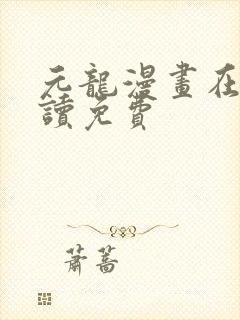 元龍漫畫在
讀免費
蕭蒿